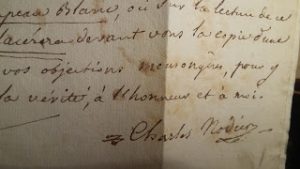 peau Blanc, où sur la lecture de ce
lacérera devant vous la copie d'une
vos objections mensongères, pour y
la vérité, à l'honneur et à moi.
Charles Nodier